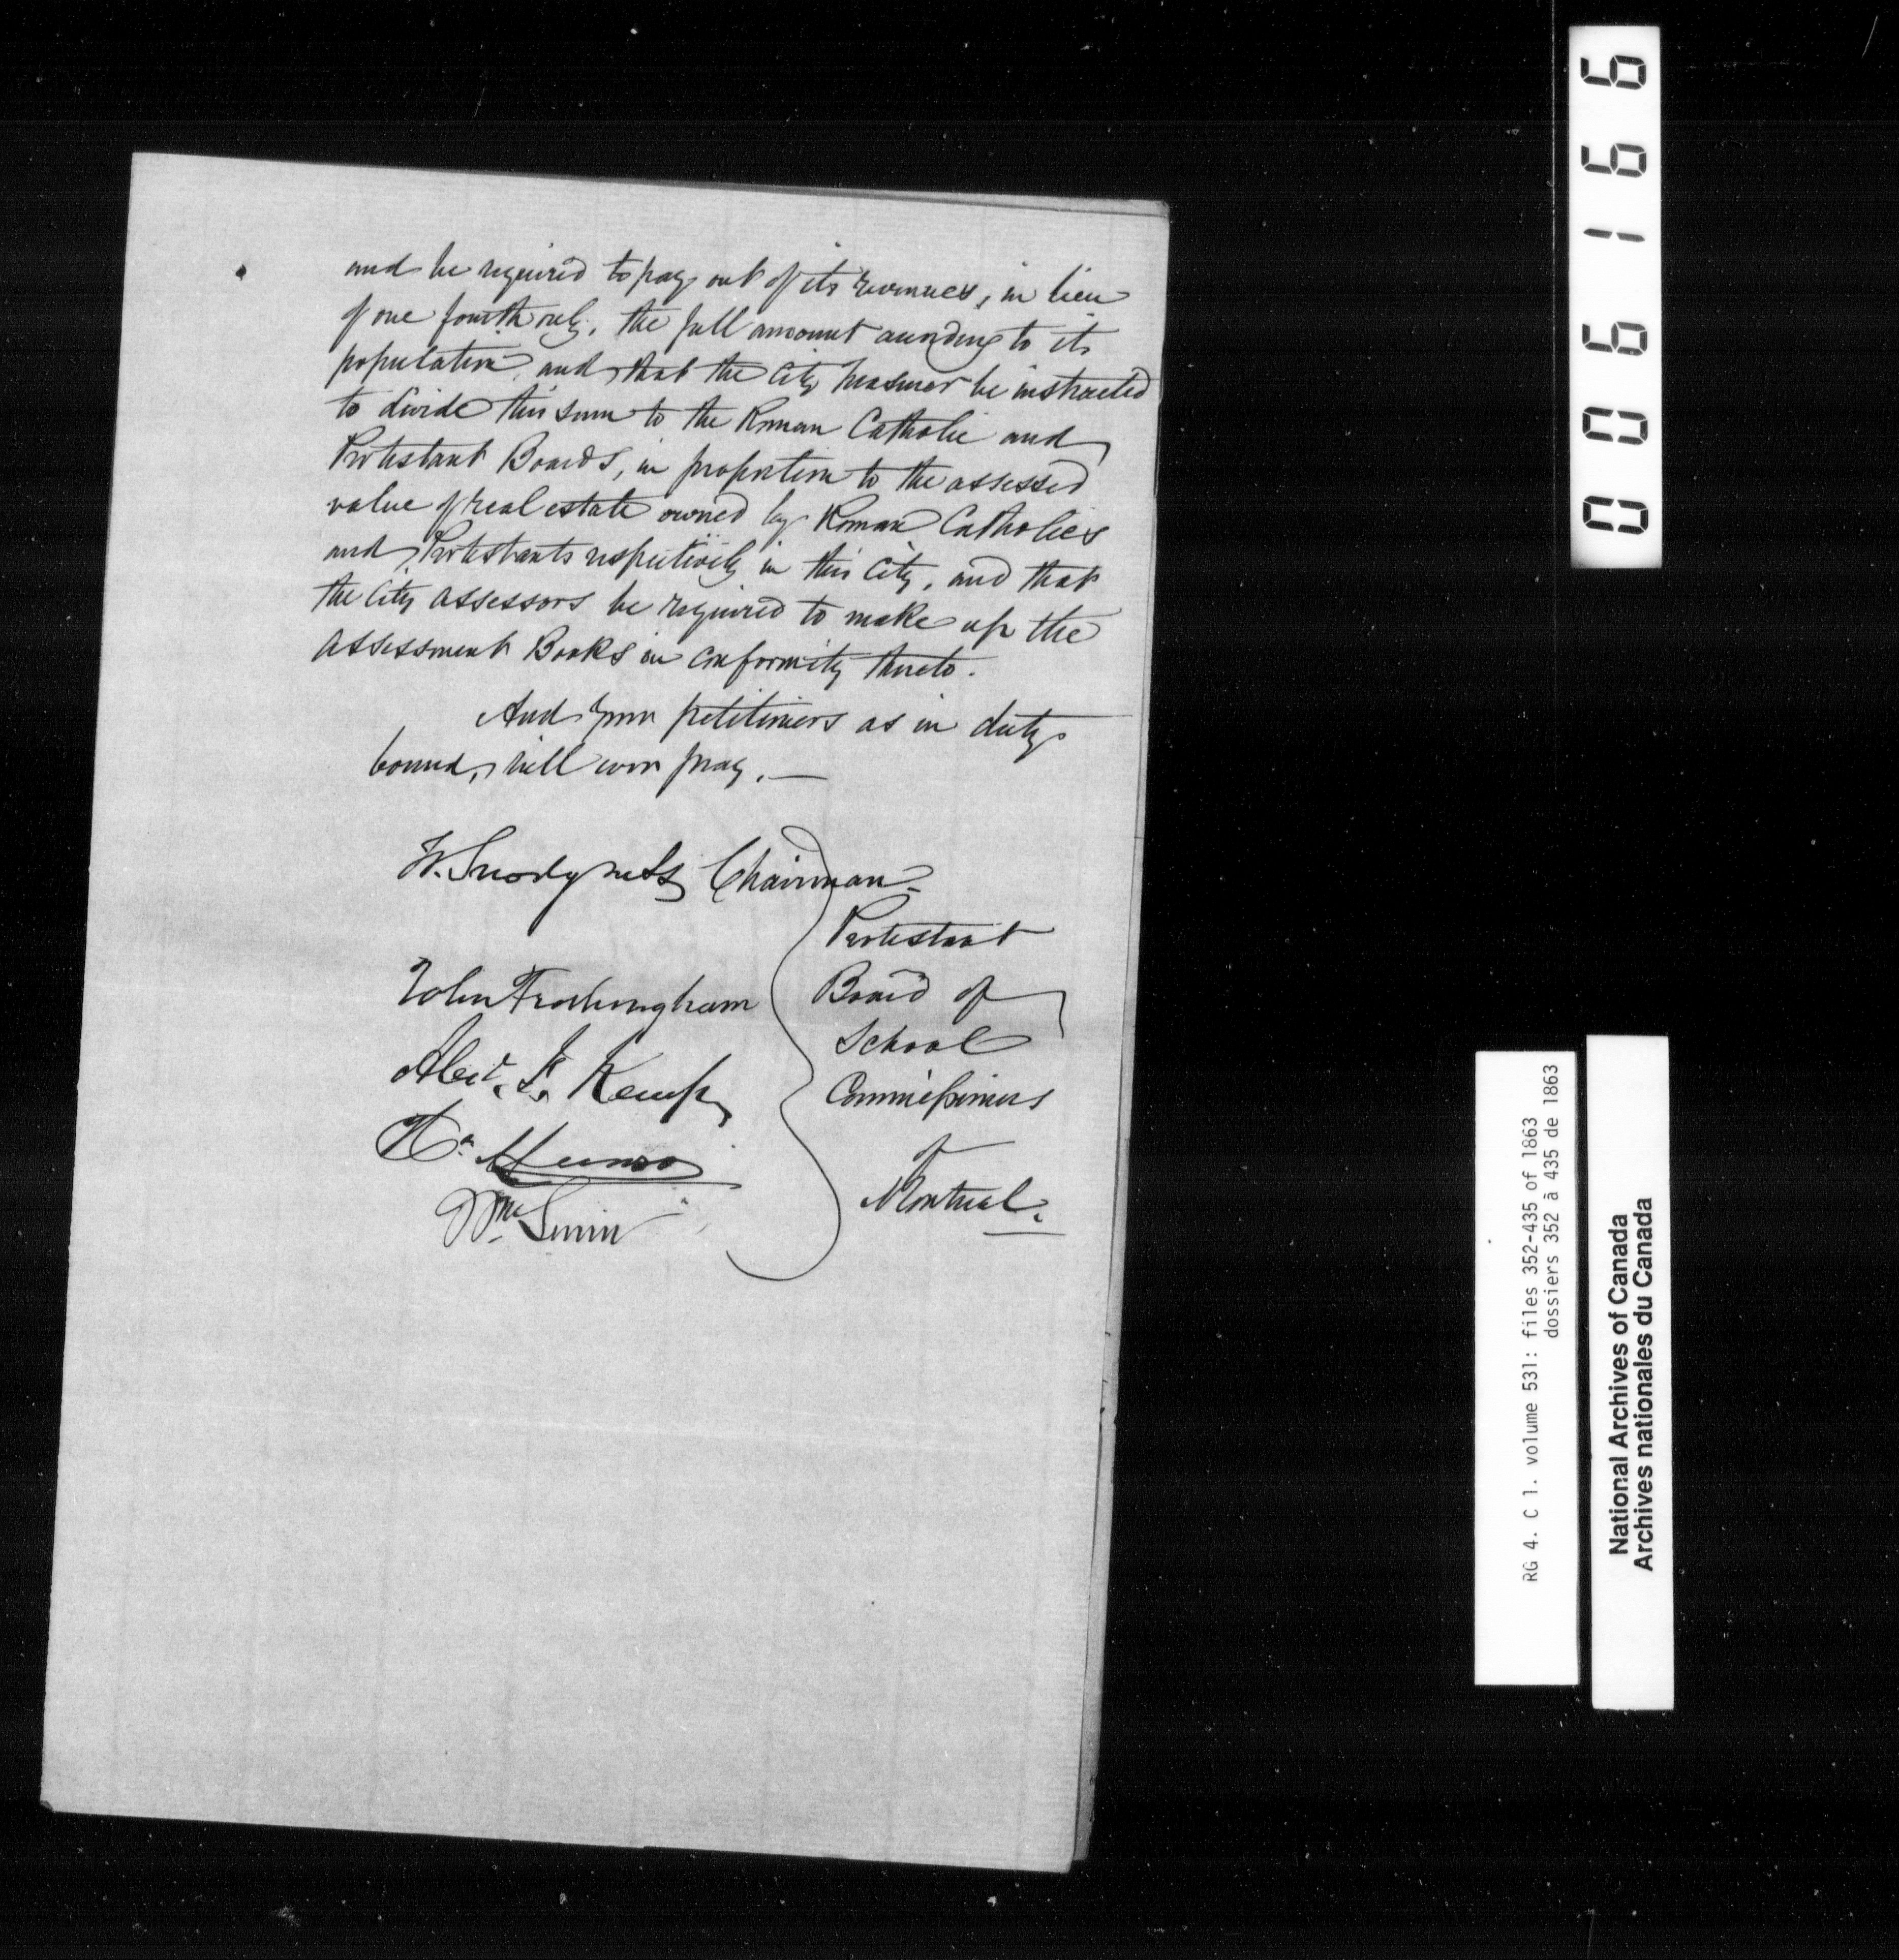 and be required to pay out of its revenues, in lieu
of one fourth only, the full amount according to its
population, and that the City Treasurer be instructed
to divide this sum to the Roman Catholic and
Protestant Boards, in proportion to the assessed
value of real estate owned by Roman Catholics
and Protestants respectively in this City, and that
the City Assessors be required to make up the
Assessment Books in conformity thereto.
And your petitioners as in duty
bound, will ever pray. —
W. Snodgrass Chairman
John Frothingham
Alexr. F. Kemp
Wm
Protestant
Board of
School
Commissioners
of
Montreal.
006166
RG 4. C 1. volume 531: files 352-435 of 1863
dossiers 352 à 435 de 1863
National Archives of Canada
Archives nationales du Canada